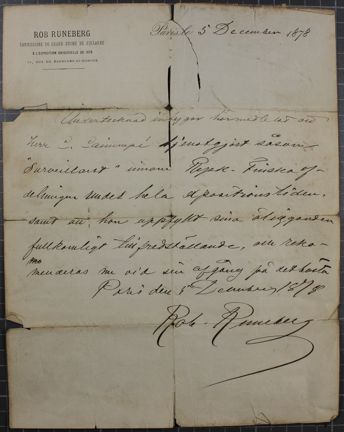 ROB RUNEBERG
COMMISSAIRE DU GRAND DUCHÉ DE FINLANDE
A L'EXPOSITION UNIVERSELLE DE 1878
Paris le 5 December 1878
Undertecknad intygar härmedelst att
Herr E. tjenstgjort såsom
"Surveillant" inom Rysk-Finska af-
delningen under hela expositionstiden,
samt att han uppfyllt sina åligganden
fullkomligt tillfredställande, och reko-
menderas nu vid sin afgång på det bästa
Paris den 5 December 1878
Rob. Runeberg